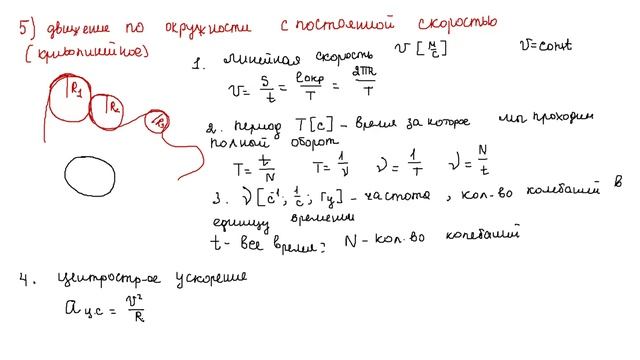 5) движение по окружности с постоянной скоростью
(криволинейное)
1. линейная скорость υ [м/с] υ=const
υ = S/t = lокр/T = 2πR/T
R₁ R₂ R₃
2. период T[c] – время за которое мы проходим
полный оборот
T = t/N T = 1/ν ν = 1/T ν = N/t
3. ν [c⁻¹; 1/c; Гц] – частота, кол-во колебаний в
единицу времени
t – все время; N – кол-во колебаний
4. центростр-ое ускорение
aц.с = υ²/R